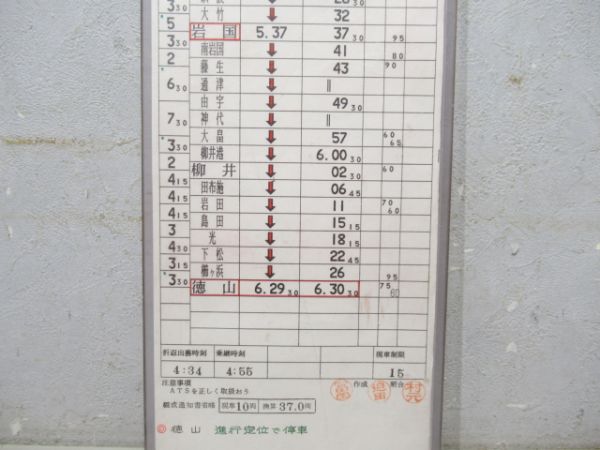 3 30
大竹 ↓ 32
5 岩国 5.37 37 30 95
3 30 南岩国 ↓ 41 80
2 藤生 ↓ 43 90
通津 ↓ ||
6 30 由宇 ↓ 49 30
神代 ↓ ||
7 30 大畠 ↓ 57 60 65
3 30 柳井港 ↓ 6.00 30
2 柳井 ↓ 02 30 60
4 15 田布施 ↓ 06 45
4 15 岩田 ↓ 11 70 60
4 15 島田 ↓ 15 15
3 光 ↓ 18 15
4 30 下松 ↓ 22 45
3 15 櫛ヶ浜 ↓ 26 95
3 30 徳山 6.29 30 6.30 30 75 60
折返出務時刻 乗継時刻 現車制限
4:34 4:55 15
注意事項 作成 照合
ATSを正しく取扱おう
編成通知書省略 現車10両 換算37.0両
◎徳山 進行定位で停車